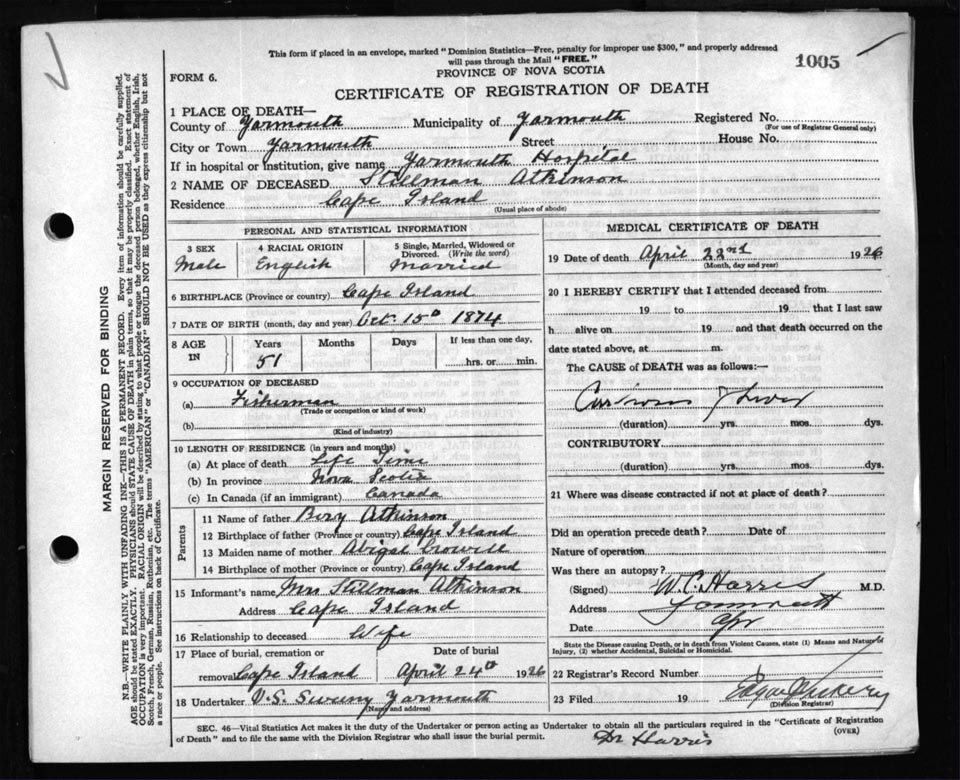 This form if placed in an envelope, marked "Dominion Statistics—Free, penalty for improper use $300," and properly addressed
will pass through the Mail "FREE."
1005
PROVINCE OF NOVA SCOTIA
FORM 6.
CERTIFICATE OF REGISTRATION OF DEATH
1 PLACE OF DEATH—
County of Yarmouth Municipality of Yarmouth Registered No.
(For use of Registrar General only)
City or Town Yarmouth Street House No.
If in hospital or institution, give name Yarmouth Hospital
2 NAME OF DECEASED Stillman Atkinson
Residence Cape Island
(Usual place of abode)
PERSONAL AND STATISTICAL INFORMATION
3 SEX 4 RACIAL ORIGIN 5 Single, Married, Widowed or
Divorced. (Write the word)
Male English Married
6 BIRTHPLACE (Province or country) Cape Island
7 DATE OF BIRTH (month, day and year) Oct. 15th 1874
8 AGE IN Years Months Days If less than one day,
51 hrs. or min.
9 OCCUPATION OF DECEASED
(a) Fisherman
(Trade or occupation or kind of work)
(b)
(Kind of industry)
10 LENGTH OF RESIDENCE (in years and months)
(a) At place of death Life Time
(b) In province Nova Scotia
(c) In Canada (if an immigrant) Canada
Parents
11 Name of father Atkinson
12 Birthplace of father (Province or country) Cape Island
13 Maiden name of mother Abigal Crowell
14 Birthplace of mother (Province or country) Cape Island
15 Informant's name Mrs Stillman Atkinson
Address Cape Island
16 Relationship to deceased Wife
17 Place of burial, cremation or Date of burial
removal Cape Island April 24th 1926
18 Undertaker V.S. Sweeny Yarmouth
(Name and address)
MEDICAL CERTIFICATE OF DEATH
19 Date of death April 22nd 1926
(Month, day and year)
20 I HEREBY CERTIFY that I attended deceased from
19 to 19 that I last saw
h alive on 19 and that death occurred on the
date stated above, at m.
The CAUSE of DEATH was as follows:—
Liver
(duration) yrs. mos. dys.
CONTRIBUTORY
(duration) yrs. mos. dys.
21 Where was disease contracted if not at place of death?
Did an operation precede death? Date of
Nature of operation
Was there an autopsy?
(Signed) W.C. Harris M.D.
Address Yarmouth
Date Apr
State the Disease causing Death, or in death from Violent Causes, state (1) Means and Nature of
Injury, (2) whether Accidental, Suicidal or Homicidal.
22 Registrar's Record Number
23 Filed 19
(Division Registrar)
SEC. 46—Vital Statistics Act makes it the duty of the Undertaker or person acting as Undertaker to obtain all the particulars required in the "Certificate of Registration
of Death" and to file the same with the Division Registrar who shall issue the burial permit.
(OVER)
Dr Harris
MARGIN RESERVED FOR BINDING
N.B.—WRITE PLAINLY WITH UNFADING INK—THIS IS A PERMANENT RECORD. Every item of information should be carefully supplied.
AGE should be stated EXACTLY. PHYSICIANS should STATE CAUSE OF DEATH in plain terms, so that it may be properly classified. Exact statement of
OCCUPATION is very important. RACIAL ORIGIN will be described by stating to what people or tongue the deceased person belonged, whether English, Irish,
Scotch, French, German, Russian, Ruthenian, etc. The terms "AMERICAN" or "CANADIAN" SHOULD NOT BE USED as they express citizenship but not
a race or people. See instructions on back of Certificate.